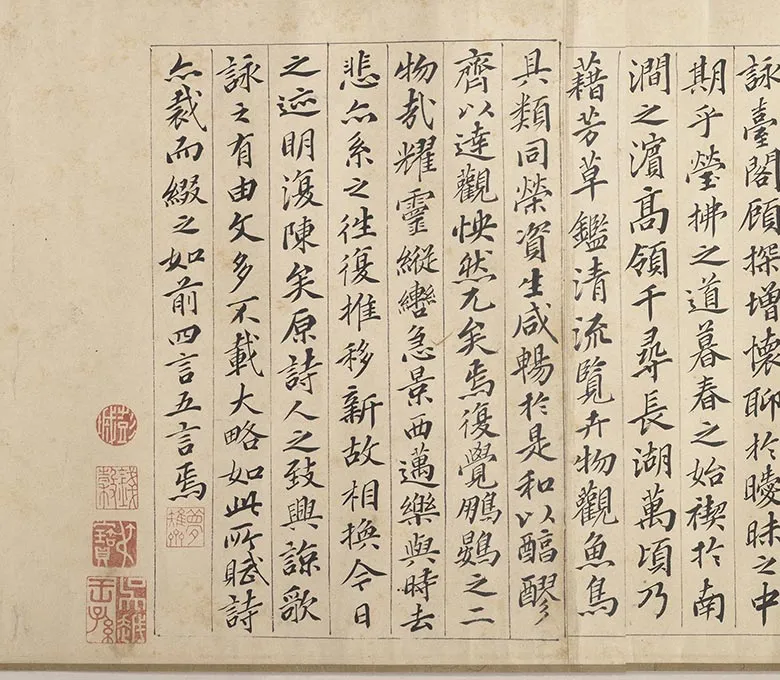 詠臺閣顧探增懷聊於曖昧之中
期乎瑩拂之道暮春之始禊於南
澗之濱高領千尋長湖萬頃乃
藉芳草鑑清流覽卉物觀魚鳥
具類同榮資生咸暢於是和以醇醪
齊以達觀怏然兀矣焉復覺鵬鷃之二
物哉耀靈縱轡急景西邁樂與時去
悲亦系之往復推移新故相換今日
之迹明復陳矣原詩人之致興諒歌
詠之有由文多不載大略如此所賦詩
亦裁而綴之如前四言五言焉
錢穀
叔寶
吳越王孫